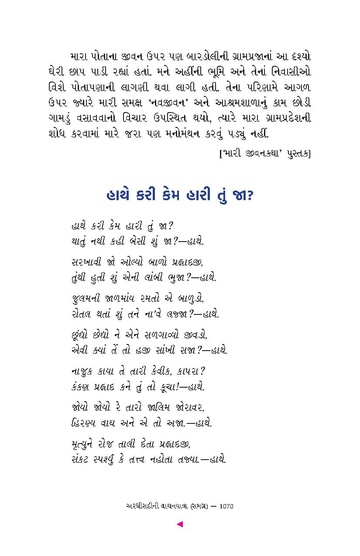 મારા પોતાના જીવન ઉપર પણ બારડોલીની ગ્રામપ્રજાનાં આ દૃશ્યો
ઘેરી છાપ પાડી રહ્યાં હતાં. મને અહીંની ભૂમિ અને તેનાં નિવાસીઓ
વિશે પોતાપણાની લાગણી થવા લાગી હતી. તેના પરિણામે આગળ
ઉપર જ્યારે મારી સમક્ષ ‘નવજીવન’ અને આશ્રમશાળાનું કામ છોડી
ગામડું વસાવવાનો વિચાર ઉપસ્થિત થયો, ત્યારે મારા ગ્રામપ્રદેશની
શોધ કરવામાં મારે જરા પણ મનોમંથન કરવું પડ્યું નહીં.
[‘મારી જીવનકથા’ પુસ્તક]
હાથે કરી કેમ હારી તું જા?
હાથે કરી કેમ હારી તું જા?
થાતું નથી કહી બેસી શું જા?—હાથે.
સરખાવી જો ઓલ્યો બાળો પ્રહ્લાદજી,
તુંથી હુતી શું એની લાંબી ભુજા?—હાથે.
જુલમની જાળમાંય રમતો એ બાળુડો,
રોતલ થતાં શું તને ના'વે લજ્જા?—હાથે.
છૂંધો છેધો ને એને સળગાવ્યો જીવડો,
એવી ક્યાં તેં તો હજી સાંખી સજા?—હાથે.
નાજુક કાયા તે તારી કેવીક, કાયરા?
કંકણ પ્રહ્લાદ કને તું તો કૂચા!—હાથે.
જોયો જોયો રે તારો જાલિમ જોરાવર,
હિરણ્ય વાઘ અને એ તો અજા.—હાથે.
મૃત્યુને રોજ તાલી દેતા પ્રહ્લાદજી,
સંકટ સ્પર્શ્યું કે તત્ત્વ નહોતા તજ્યા.—હાથે.
અરધીસદીની વાચનયાત્રા (સમગ્ર) — 1070